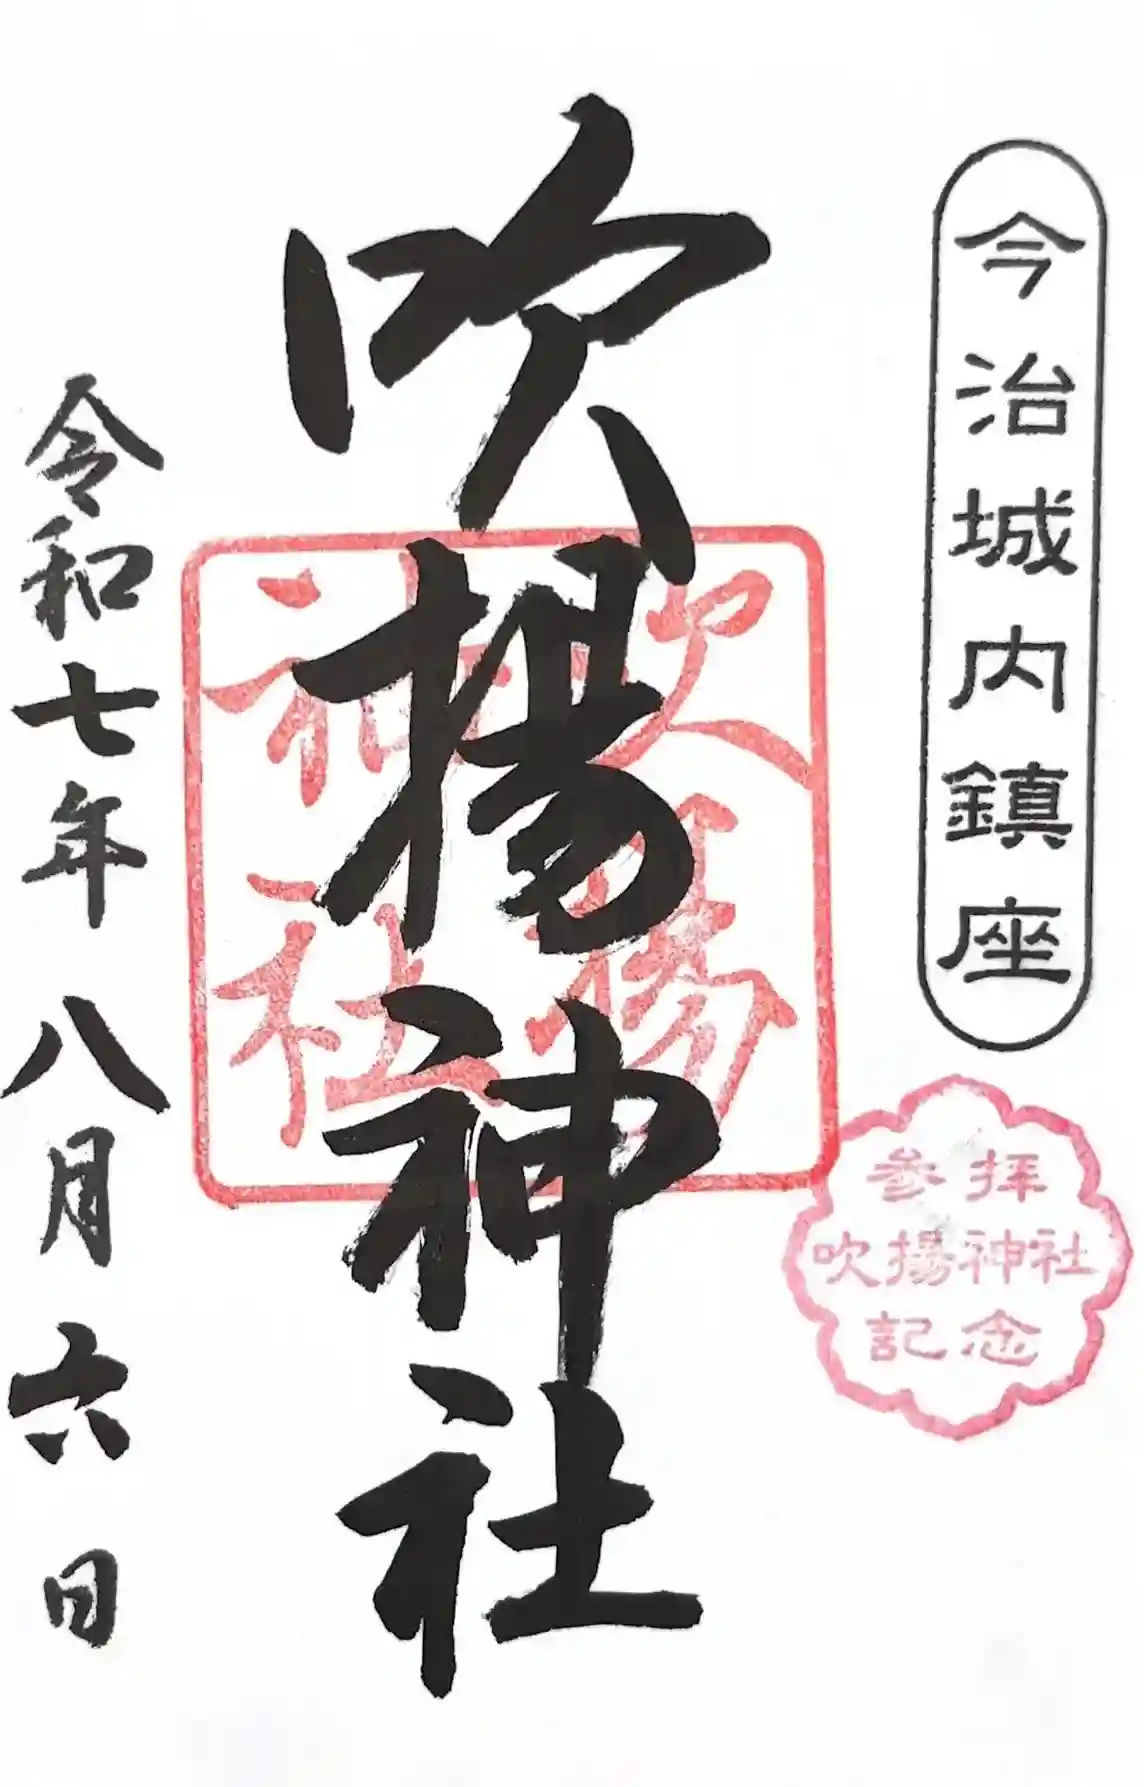 今治城内鎮座
参拝
吹揚神社
記念
吹揚神社
吹揚
神社
令和七年八月六日